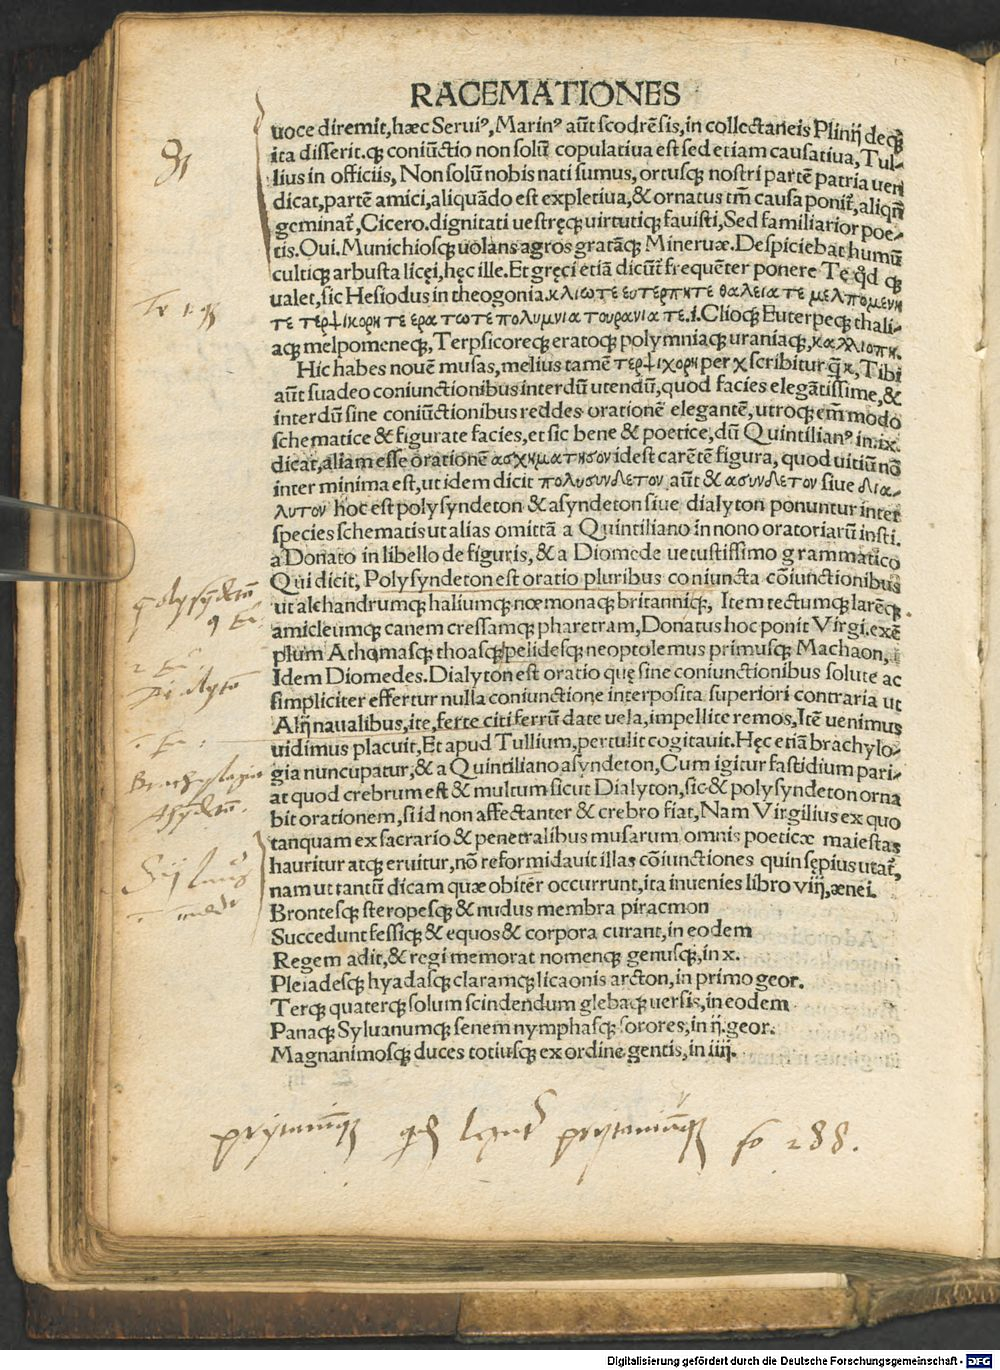 RACEMATIONES
uoce diremit, hæc Seruiꝰ, Marinꝰ aūt scodrēsis, in collectaneis Plinij de qꝫ
ita disserit. qꝫ coniūctio non solū copulatiua est sed etiam causatiua, Tul-
lius in officiis, Non solū nobis nati sumus, ortusqꝫ nostri partē patria uen
dicat, partē amici, aliquādo est expletiua, & ornatus tm̄ causa ponit̄, aliqn̄
geminat̄, Cicero. dignitati uestręqꝫ uirtutiqꝫ fauisti, Sed familiarior poe-
tis. Oui. Munichiosqꝫ uolans agros gratāqꝫ Mineruæ. Despiciebat humū
cultiqꝫ arbusta licęi, hęc ille. Et gręci etiā dicūt̄ frequēter ponere Te qd̄ qꝫ
ualet, sic Hesiodus in theogonia. κλιωτε ευτερπητε θαλεια τε μελπομενη
τε τερψικορη τε ερατωτε πολυμνια τουρανια τε. i. Clioqꝫ Euterpeqꝫ thali-
aqꝫ melpomeneqꝫ, Terpsicoreqꝫ eratoqꝫ polymniaqꝫ uraniaqꝫ, καλλιοπη.
Hic habes nouē musas, melius tamē τερψιχορη per χ scribitur q̄ κ, Tibi
aūt suadeo coniunctionibus interdū utendū, quod facies elegātissime, &
interdū sine coniūctionibus reddes orationē elegantē, utroqꝫ em̄ modo
schematice & figurate facies, et sic bene & poetice, dū Quintilianꝰ in. ix.
dicat, aliam esse orationē ασχηματησον id est carētē figura, quod uitiū nō
inter minima est, ut idem dicit πολυσυνδετον aūt & ασυνδετον siue δια-
λυτον hoc est polysyndeton & asyndeton siue dialyton ponuntur inter
species schematis ut alias omittā a Quintiliano in nono oratoriarū insti.
a Donato in libello de figuris, & a Diomede uetustissimo grammatico
Qui dicit, Polysyndeton est oratio pluribus coniuncta cōiunctionibus
ut alchandrumqꝫ haliumqꝫ nœmonaqꝫ britanniqꝫ, Item tectumqꝫ larēqꝫ
amicleumqꝫ canem cressamqꝫ pharetram, Donatus hoc ponit Virgi. exē
plum Athomasqꝫ thoasqꝫ pelidesqꝫ neoptolemus primusqꝫ Machaon,
Idem Diomedes. Dialyton est oratio quę sine coniunctionibus solute ac
simpliciter effertur nulla coniunctione interposita superiori contraria ut
Alij naualibus, ite, ferte citi ferrū date uela, impellite remos, Itē uenimus
uidimus placuit, Et apud Tullium, pertulit cogitauit. Hęc etiā brachylo-
gia nuncupatur, & a Quintiliano asyndeton, Cum igitur fastidium pari-
at quod crebrum est & multum sicut Dialyton, sic & polysyndeton orna
bit orationem, si id non affectanter & crebro fiat, Nam Virgilius ex quo
tanquam ex sacrario & penetralibus musarum omnis poeticæ maiestas
hauritur atqꝫ eruitur, nō reformidauit illas cōiunctiones quin sępius utat̄,
nam ut tantū dicam quæ obiter occurrunt, ita inuenies libro viij, ænei.
Brontesqꝫ steropesqꝫ & nudus membra piracmon
Succedunt fessiqꝫ & equos & corpora curant, in eodem
Regem adit, & regi memorat nomenqꝫ genusqꝫ, in x.
Pleiadesqꝫ hyadasqꝫ claramqꝫ licaonis arcton, in primo geor.
Terqꝫ quaterqꝫ solum scindendum glebaqꝫ uersis, in eodem
Panaqꝫ Syluanumqꝫ senem nymphasqꝫ sorores, in ij. geor.
Magnanimosqꝫ duces totiusqꝫ ex ordine gentis, in iiij.
Te i. qꝫ
polysyndetō
Dialytō
Brachylogia
Asyndetō.
prytanimqꝫ prytanimqꝫ fo 288.
Digitalisierung gefördert durch die Deutsche Forschungsgemeinschaft - DFG